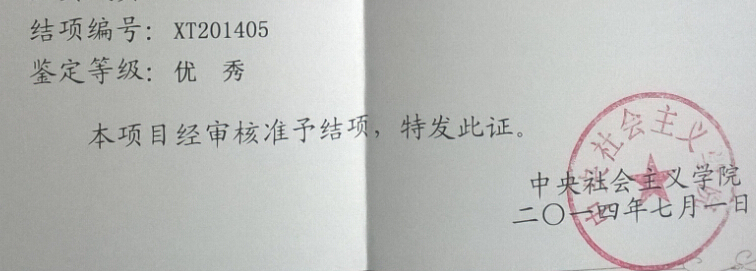 结项编号：XT201405
鉴定等级：优 秀
本项目经审核准予结项，特发此证。
中央社会主义学院
二〇一四年七月一日
中央社会主义学院